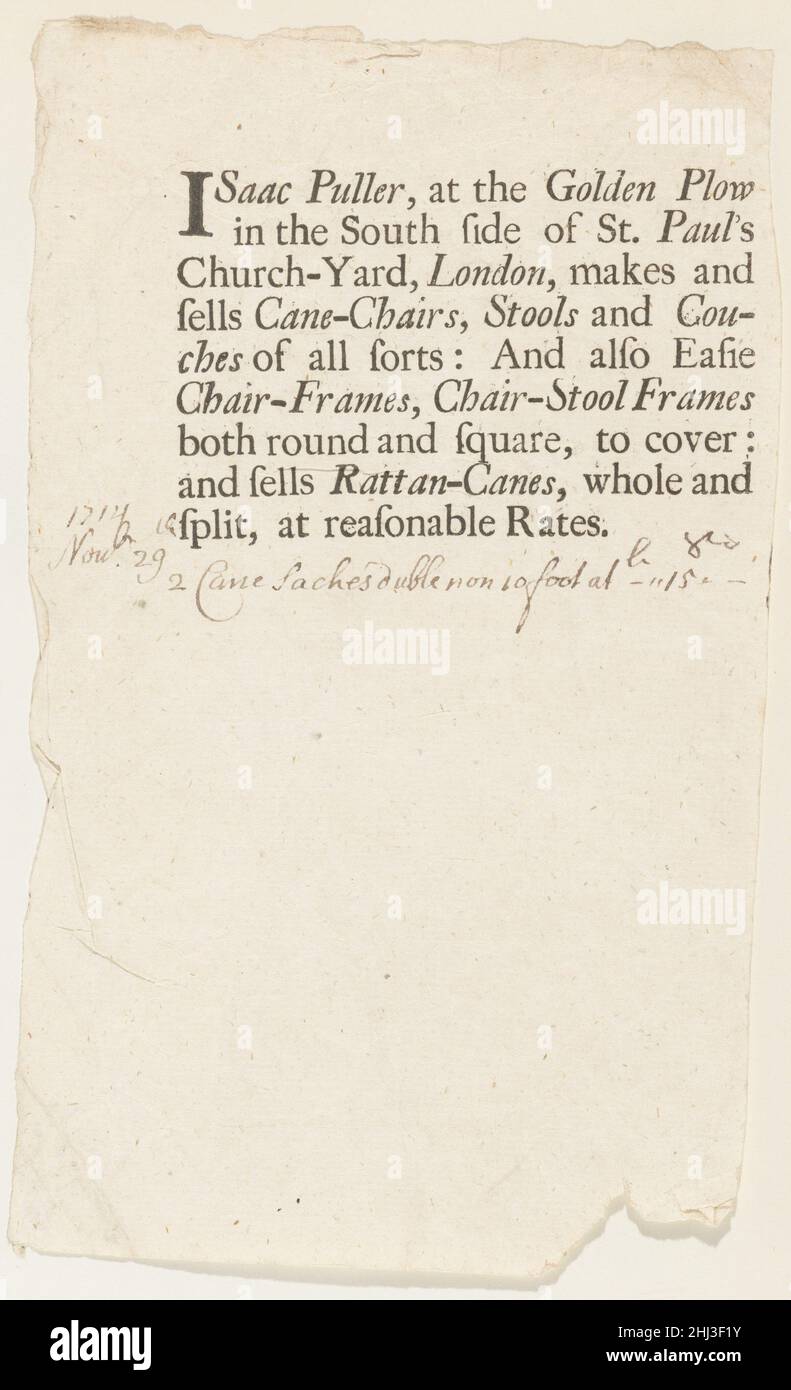 ISaac Puller, at the Golden Plow
in the South ſide of St. Paul's
Church-Yard, London, makes and
ſells Cane-Chairs, Stools and Cou-
ches of all ſorts: And alſo Eaſie
Chair-Frames, Chair-Stool Frames
both round and ſquare, to cover:
and ſells Rattan-Canes, whole and
ſplit, at reaſonable Rates.
Nov. 29
2 Cane Saches duble non 10 foot at 15
alamy
alamy
Image ID: 2HJ3F1Y
www.alamy.com